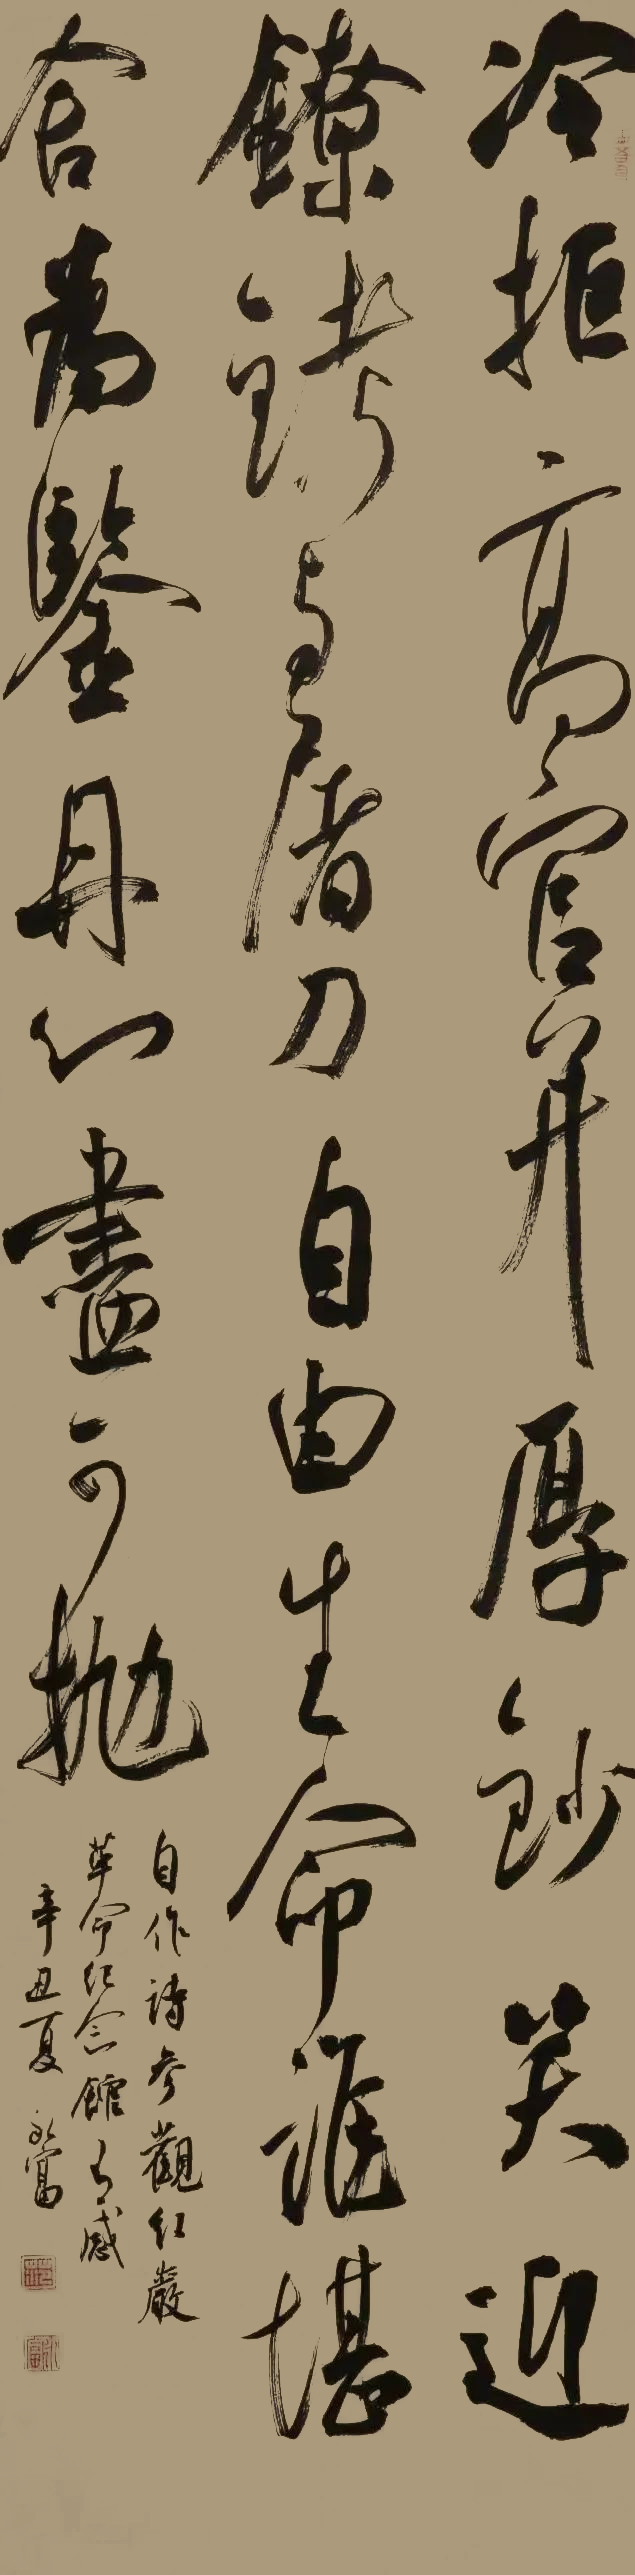 冷拒高官并厚鈔笑迎
鐐銬與屠刀自由生命誰堪
舍為鑒丹心盡可抛
自作詩參觀紅巖
革命纪念館有感
辛丑夏 永富